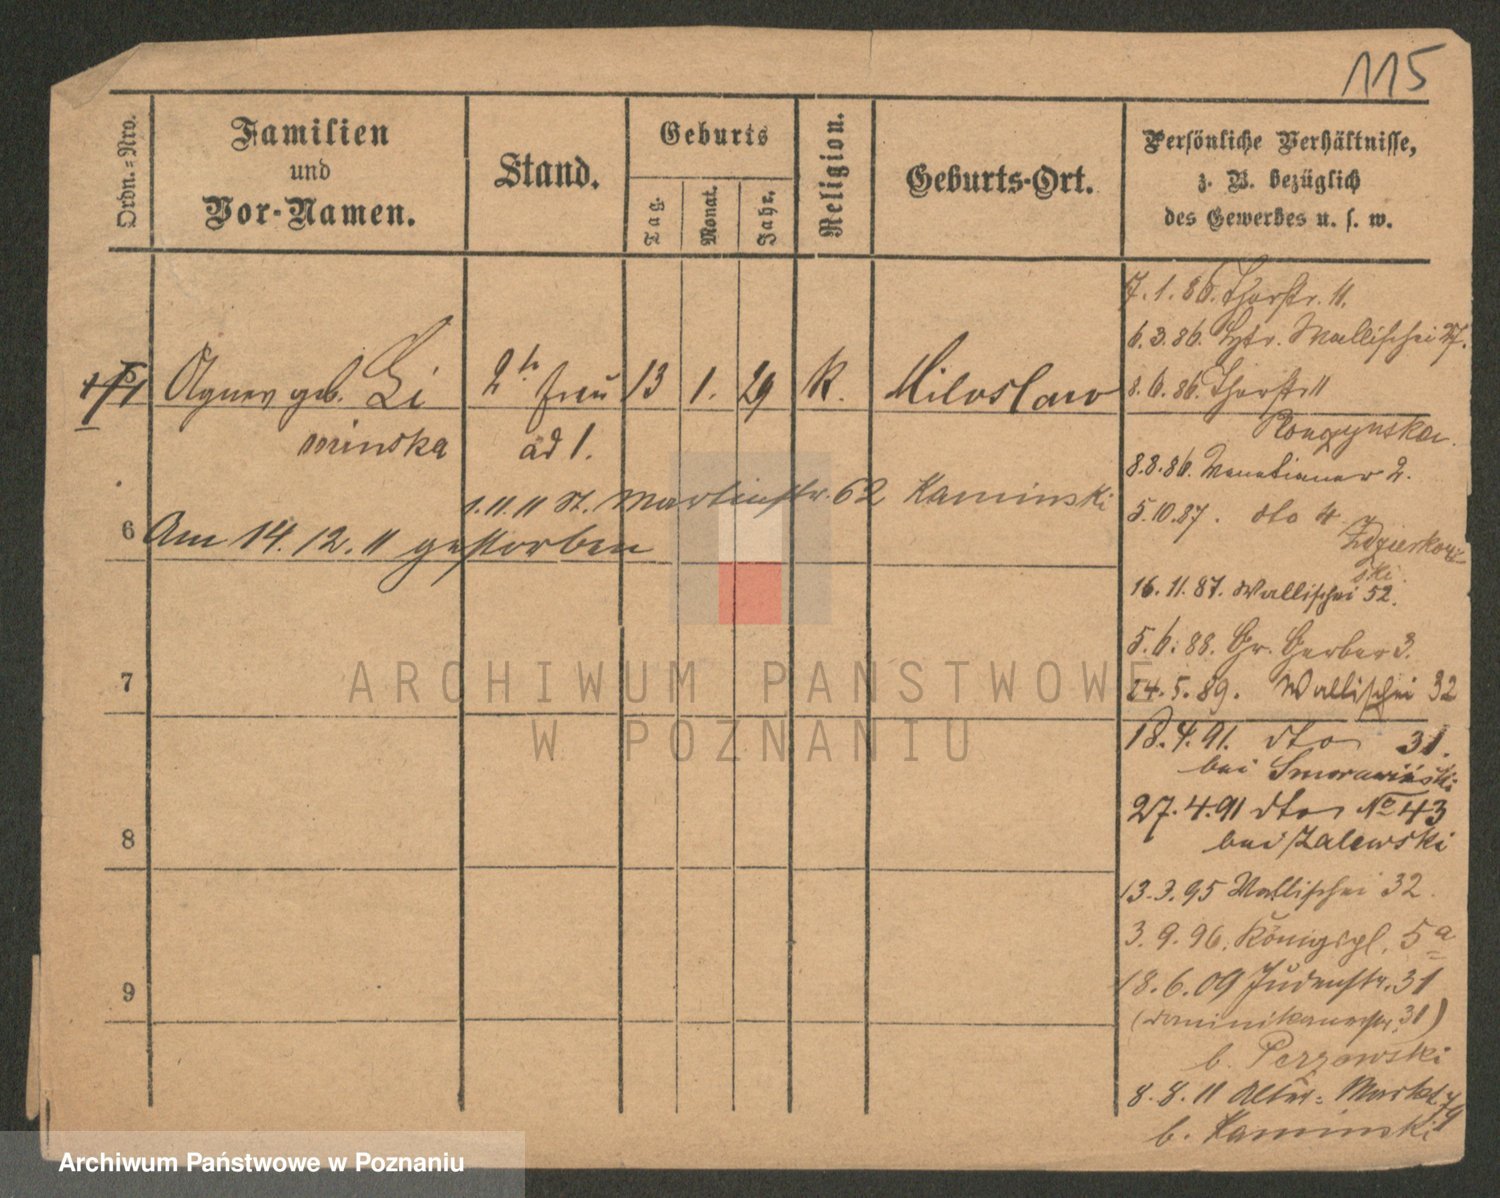 115
Ordn.=Nro.
Familien
und
Vor-Namen.
Stand.
Geburts
Tag.
Monat.
Jahr.
Religion.
Geburts-Ort.
Persönliche Verhältnisse,
z. B. bezüglich
des Gewerbes u. s. w.
Agnes geb. Li
minska
2te Frau
ad 1.
13
1.
29
K.
Miloslaw
1.11.11 St. Martinstr. 62 Kaminski
6
Am 14.12.11 gestorben
7
8
9
7.1.86. Thorstr. 11.
6.3.86. Wallischei 27.
8.6.86. Thorstr 11
8.8.86. Venetianer 2.
5.10.87. dto 4
16.11.87. Wallischei 52.
5.6.88. Gr. Gerber 3.
24.5.89. Wallischei 32
18.4.91. dto 31.
bei Smorawinski
27.4.91 dto No 43
bei Zalewski
13.3.95 Wallischei 32.
3.9.96. Königspl. 5a
18.6.09 Judenstr. 31
(Dominikanerstr. 31)
b. Perzowski
8.8.11 Alter-Markt 79
b. Kaminski
ARCHIWUM PAŃSTWOWE
W POZNANIU
Archiwum Państwowe w Poznaniu